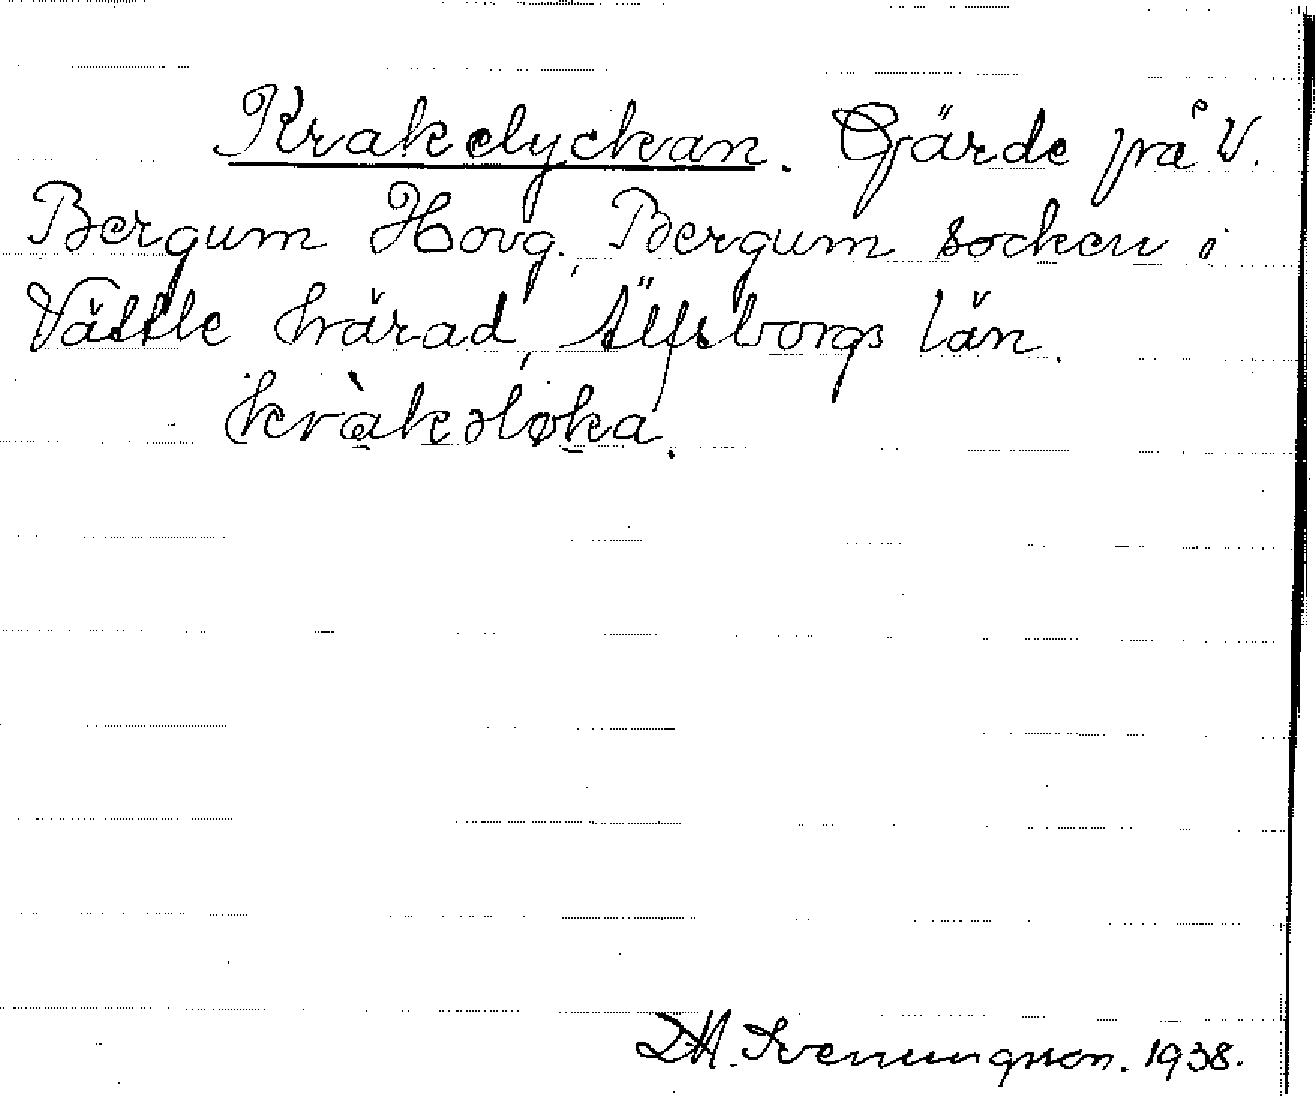 Krakelyckan. Gärde på V.
Bergum Hovg., Bergum socken i
Vättle härad, Älfsborgs län.
kràkəløka.
D.M. Svenungsson. 1938.